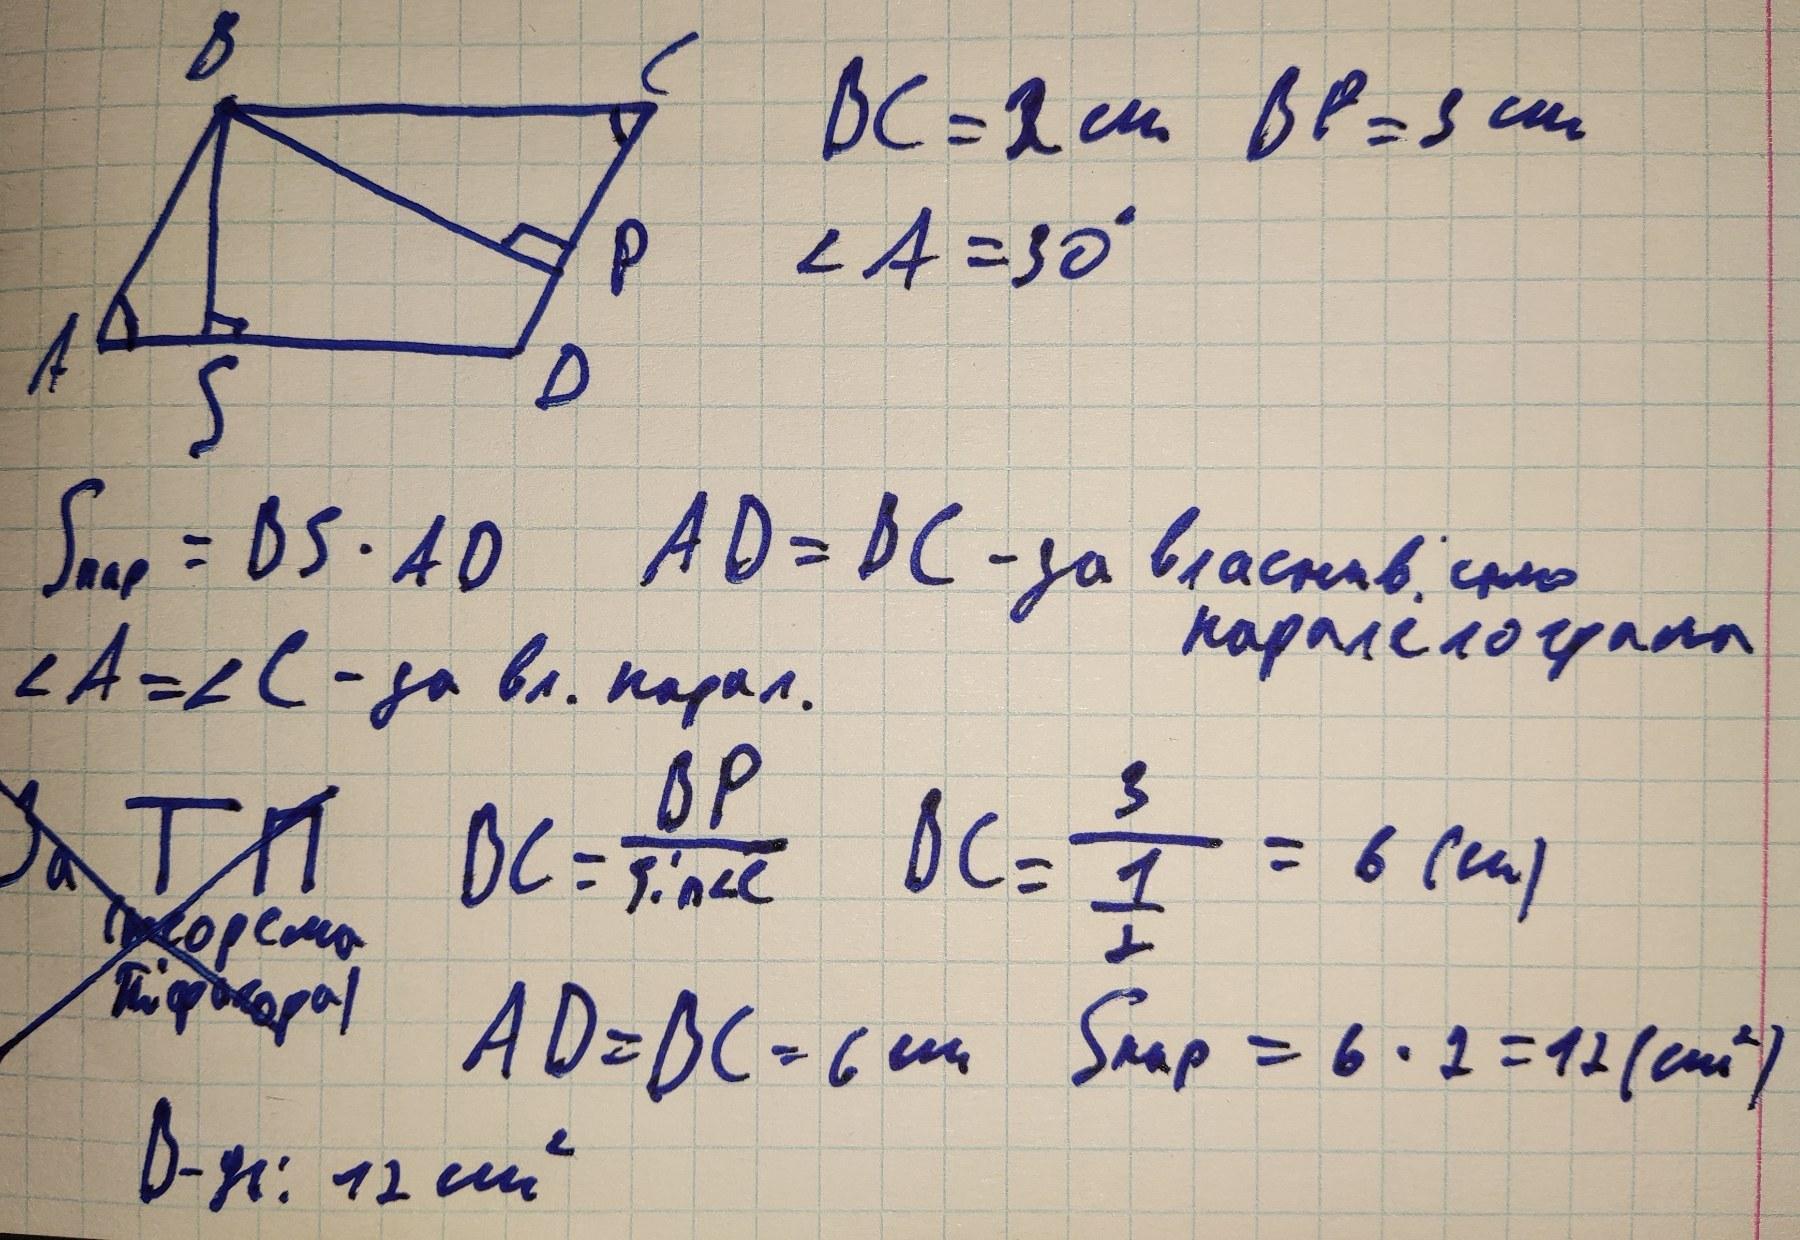 B
C
BC = 2 см BP = 3 см
P
∠A = 30°
A
S
D
Sпар = BS · AD AD = BC - за властивістю
паралелограма
∠A = ∠C - за вл. парал.
За ТП
(теорема
Піфагора)
BC = BP / sin∠C BC = 3 / (1/2) = 6 (см)
AD = BC = 6 см Sпар = 6 · 2 = 12 (см²)
В-дь: 12 см²